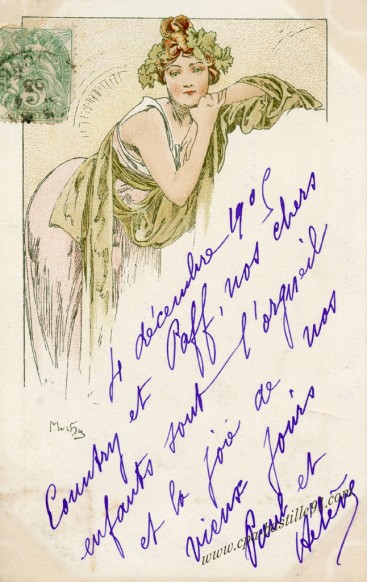 4 décembre 1905
Country et Paff, nos chers
enfants sont l'orgueil
et la joie de nos
vieux jours
Paul et
Hélène
Mucha
www.cparbustille91.com